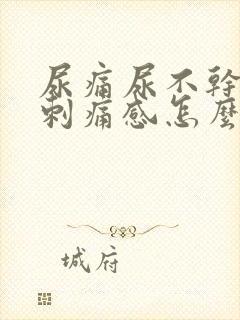 尿痛尿不幹
刺痛感怎麼
城府